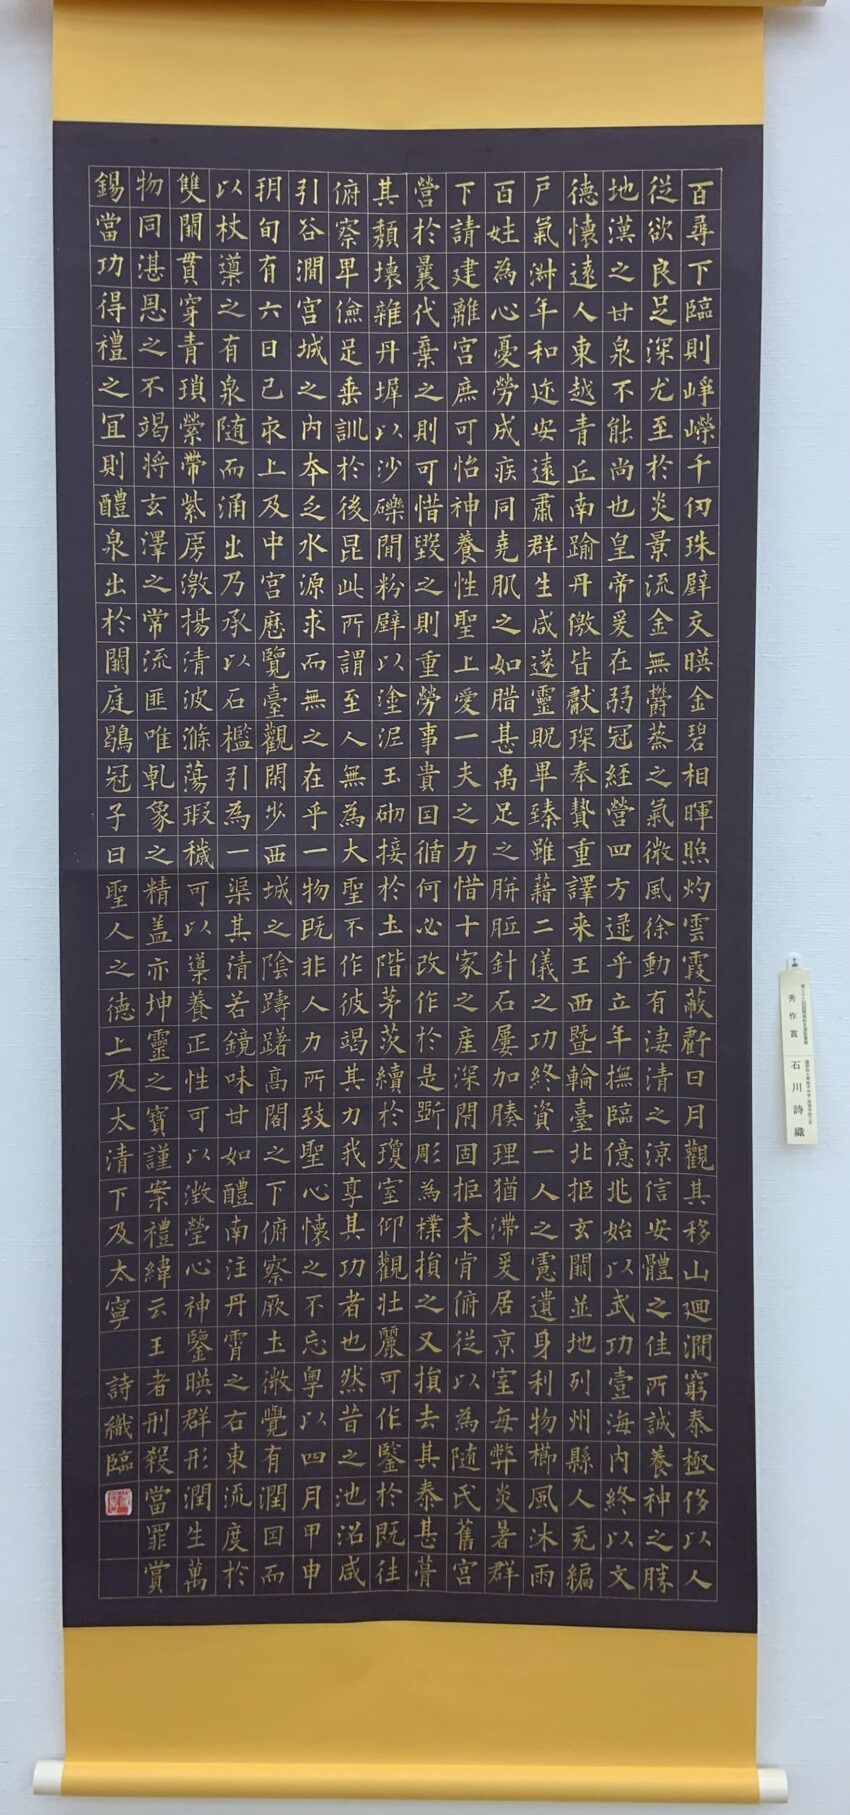 百尋下臨則崢嶸千仞珠壁交暎金碧相暉照灼雲霞蔽虧日月觀其移山廻澗窮泰極侈以人
從欲良足深尤至於炎景流金無鬱蒸之氣微風徐動有淒清之涼信安體之佳所誠養神之勝
地漢之甘泉不能尚也皇帝爰在弱冠經營四方逮乎立年撫臨億兆始以武功壹海内終以文
德懷遠人東越青丘南踰丹儌皆獻琛奉贄重譯来王西曁輪臺北拒玄闕並地列州縣人充編
戸氣淋年和迩安遠肅群生咸遂靈貺畢臻雖藉二儀之功終資一人之慮遺身利物櫛風沐雨
百姓為心憂勞成疾同堯肌之如腊甚禹足之胼胝針石屢加腠理猶滞爰居京室毎弊炎暑群
下請建離宮庶可怡神養性聖上愛一夫之力惜十家之産深閇固拒未肯俯従以為随氏舊宮
營於曩代棄之則可惜毀之則重勞事貴因循何必改作於是斲彫為樸損之又損去其泰甚葺
其頽壊雜丹墀以沙礫間粉壁以塗泥玉砌接於土階茅茨續於瓊室仰觀壮麗可作鑒於既往
俯察卑儉足垂訓於後昆此所謂至人無為大聖不作彼竭其力我享其功者也然昔之池沼咸
引谷澗宮城之内本乏水源求而無之在乎一物既非人力所致聖心懷之不忘粤以四月甲申
朔旬有六日己亥上及中宮歴覽臺觀閑步西城之陰躊躇高閣之下俯察厥土微覺有潤因而
以杖導之有泉随而涌出乃承以石檻引為一渠其清若鏡味甘如醴南注丹霄之右東流度於
雙闕貫穿青瑣縈帶紫房激揚清波滌蕩瑕穢可以導養正性可以澂瑩心神鑒暎群形潤生萬
物同湛恩之不竭将玄澤之常流匪唯乹象之精盖亦坤靈之寶謹案禮緯云王者刑殺當罪賞
錫當功得禮之宜則醴泉出於闕庭鶡冠子曰聖人之德上及太清下及太寧 詩織臨
秀作賞
石川詩織